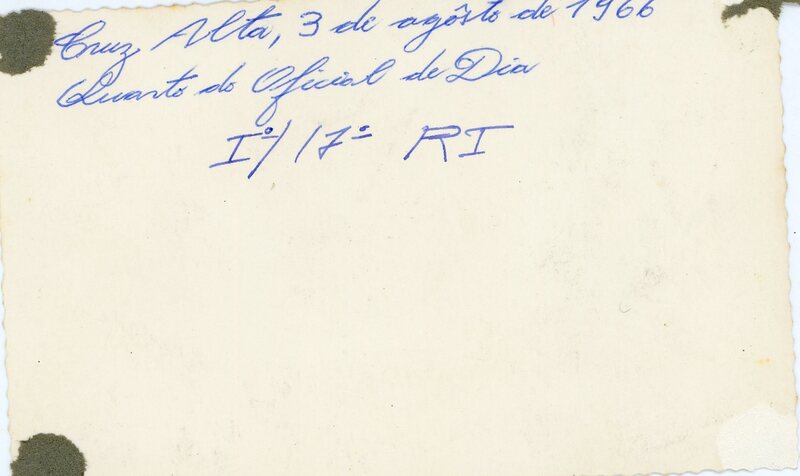 Cruz Alta, 3 de agôsto de 1966
Quarto do Oficial de Dia
Iº/17º RI